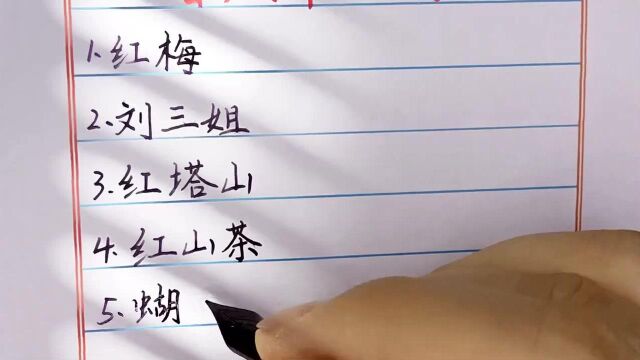 1.红梅
2.刘三姐
3.红塔山
4.红山茶
5.蝴